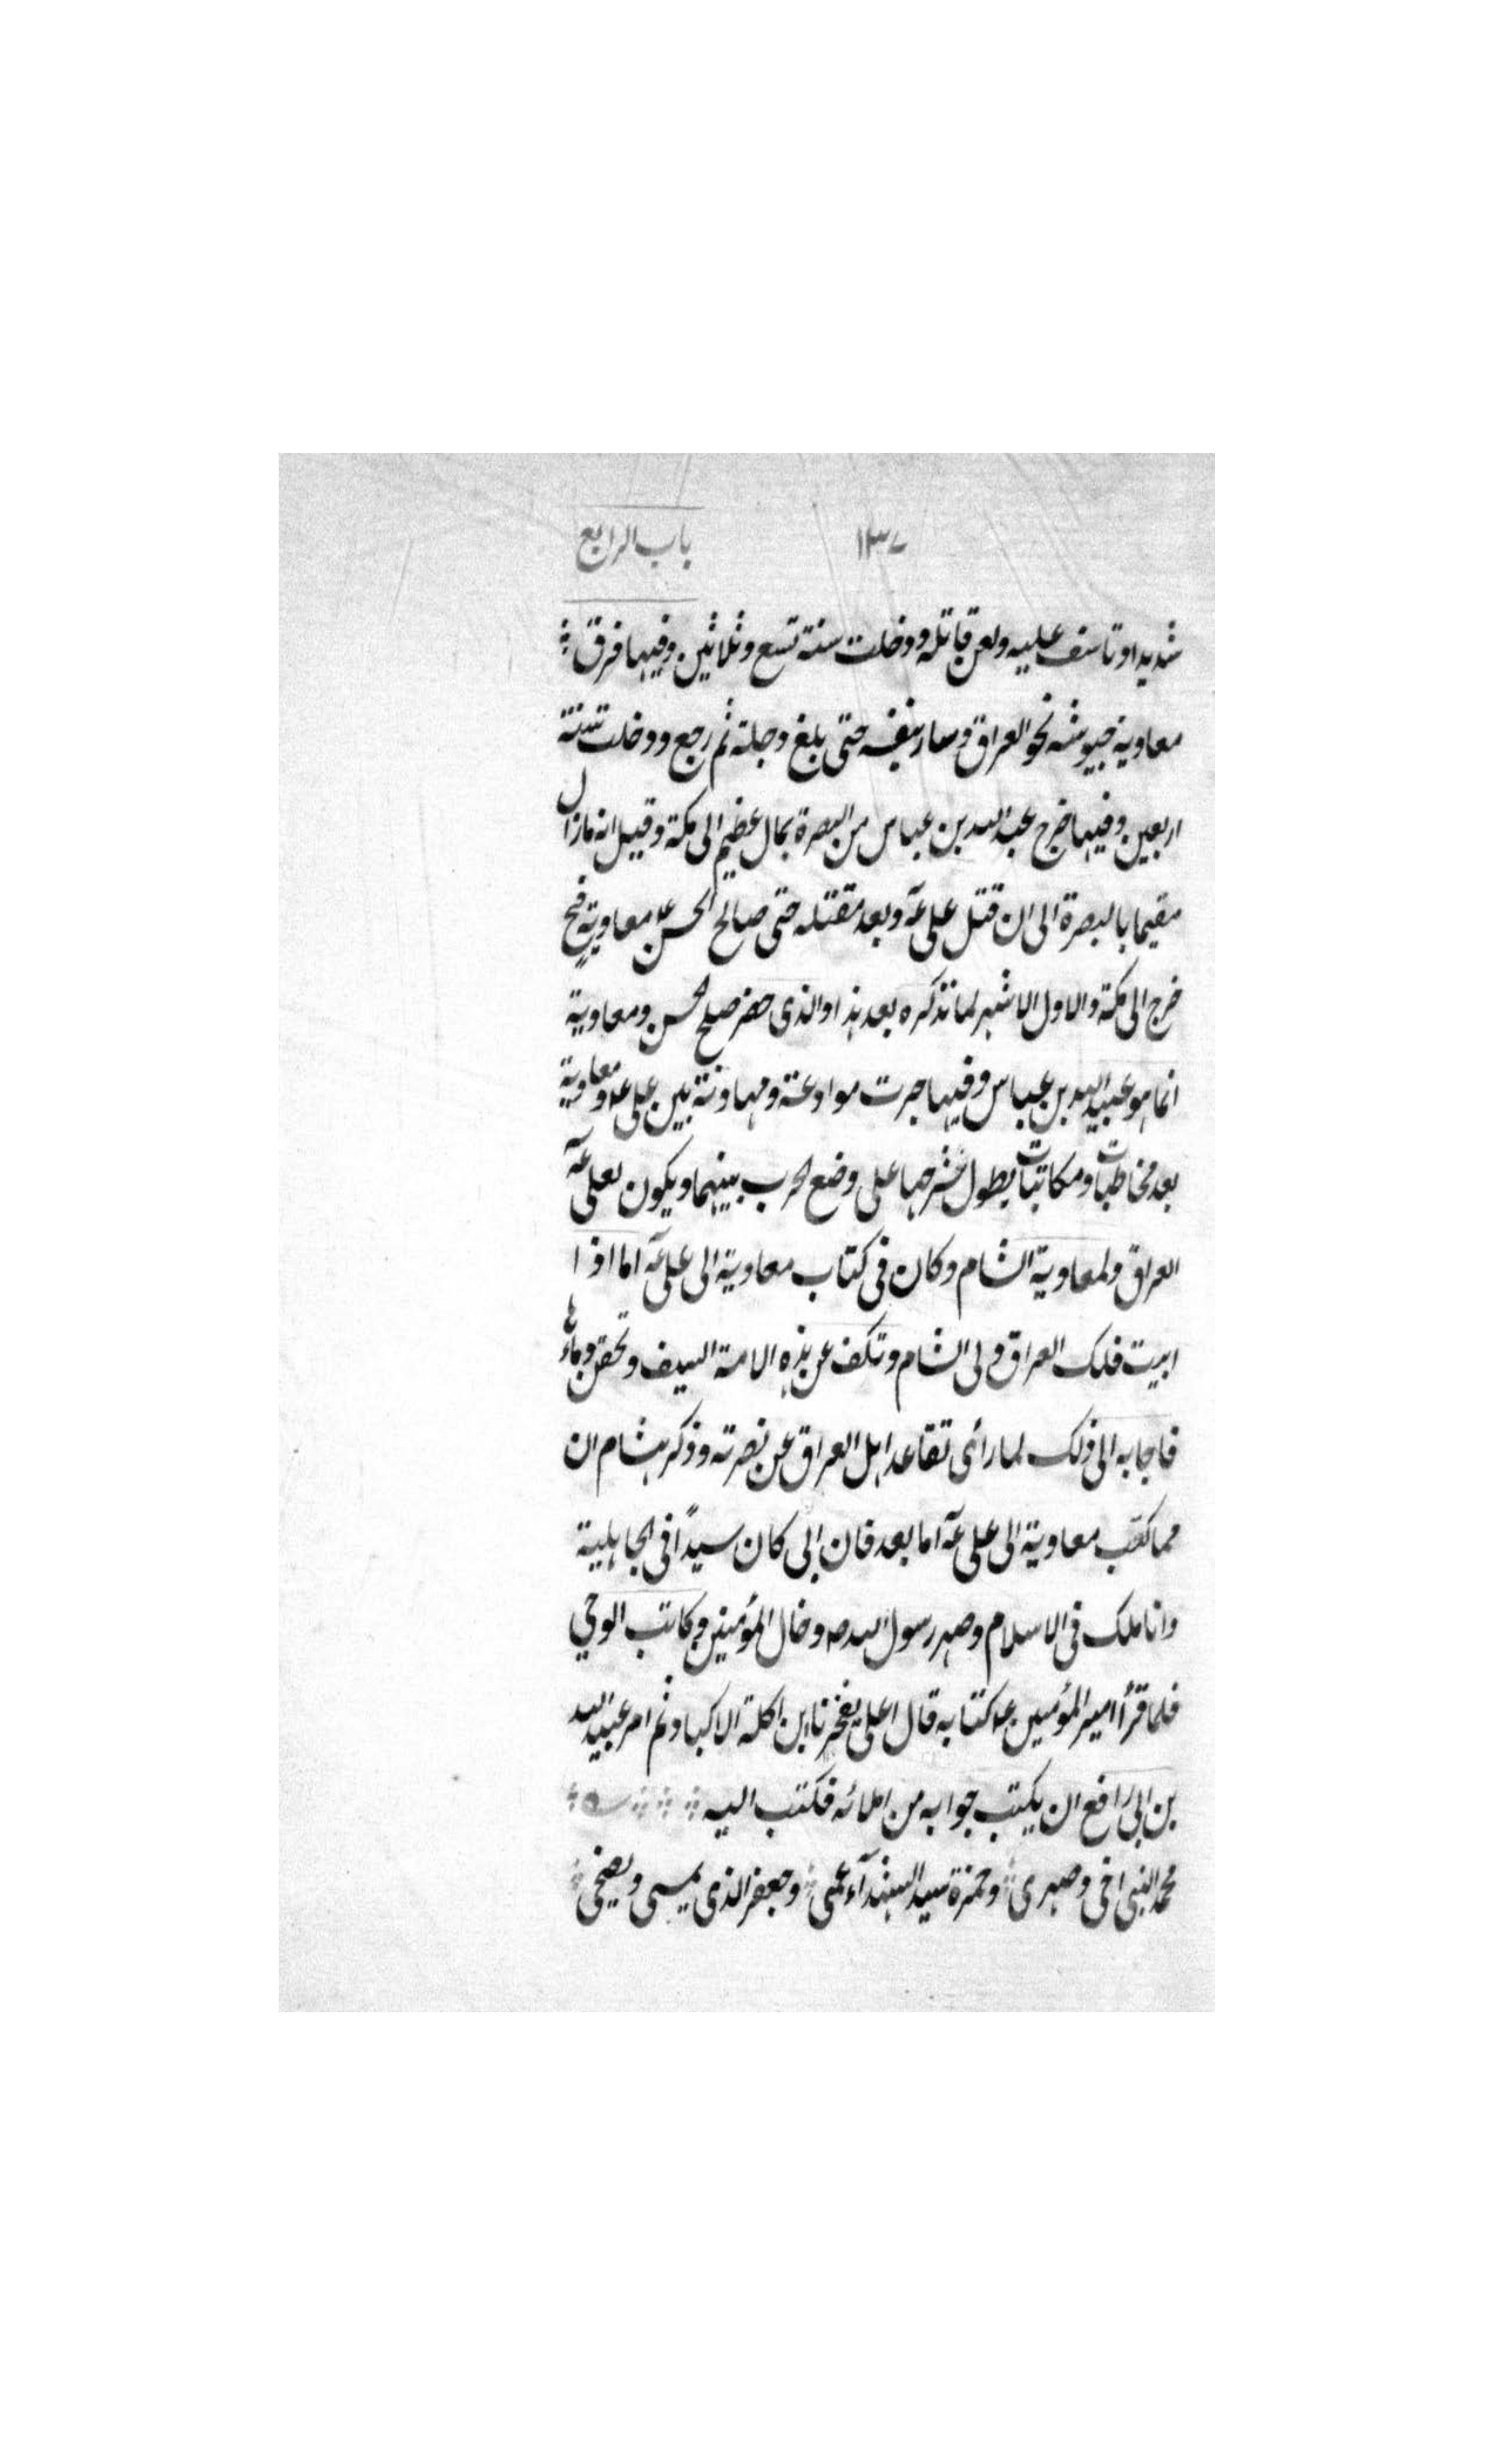 ١٣٧ باب الرابع
شديدا وتاسف عليه ولعن قاتله ودخلت سنة تسع وثلاثين وفيها فرق
معاوية جيوشه نحو العراق وسار بنفسه حتى بلغ دجلة ثم رجع ودخلت سنة
اربعين وفيها خرج عبد الله بن عباس من البصرة بمال عظيم الى مكة وقيل انه مازال
مقيما بالبصرة الى ان قتل على عه وبعد مقتله حتى صالح الحسن ع معاوية فح
خرج الى مكة والاول الاشهر لما نذكره بعد هذا والذى حضر صلح الحسن ومعاوية
انما هو عبيد الله بن عباس وفيها جرت موادعة ومهادنة بين على عه ومعاوية
بعد مخاطبات ومكاتبات يطول شرحها على وضع الحرب بينهما ويكون لعلى عه
العراق ولمعاوية الشام وكان فى كتاب معاوية الى على عه اما اذا
ابيت فلك العراق ولى الشام وتكف عن هذه الامة السيف وتحقن دماءها
فاجابه الى ذلك لما رأى تقاعد اهل العراق عن نصرته وذكر هشام ان
مما كتب معاوية الى على عه اما بعد فان ابى كان سيدًا فى الجاهلية
وانا ملك فى الاسلام وصهر رسول الله صه وخال المؤمنين وكاتب الوحي
فلما قرأ امير المؤمنين ع كتابه قال اعلى يفخرنا ابن اكلة الاكباد ثم امر عبيد الله
بن ابى رافع ان يكتب جوابه من املائه فكتب اليه
محمد النبى اخى وصهرى وحمزة سيد الشهدآء عمى وجعفر الذى يمسى ويضحى